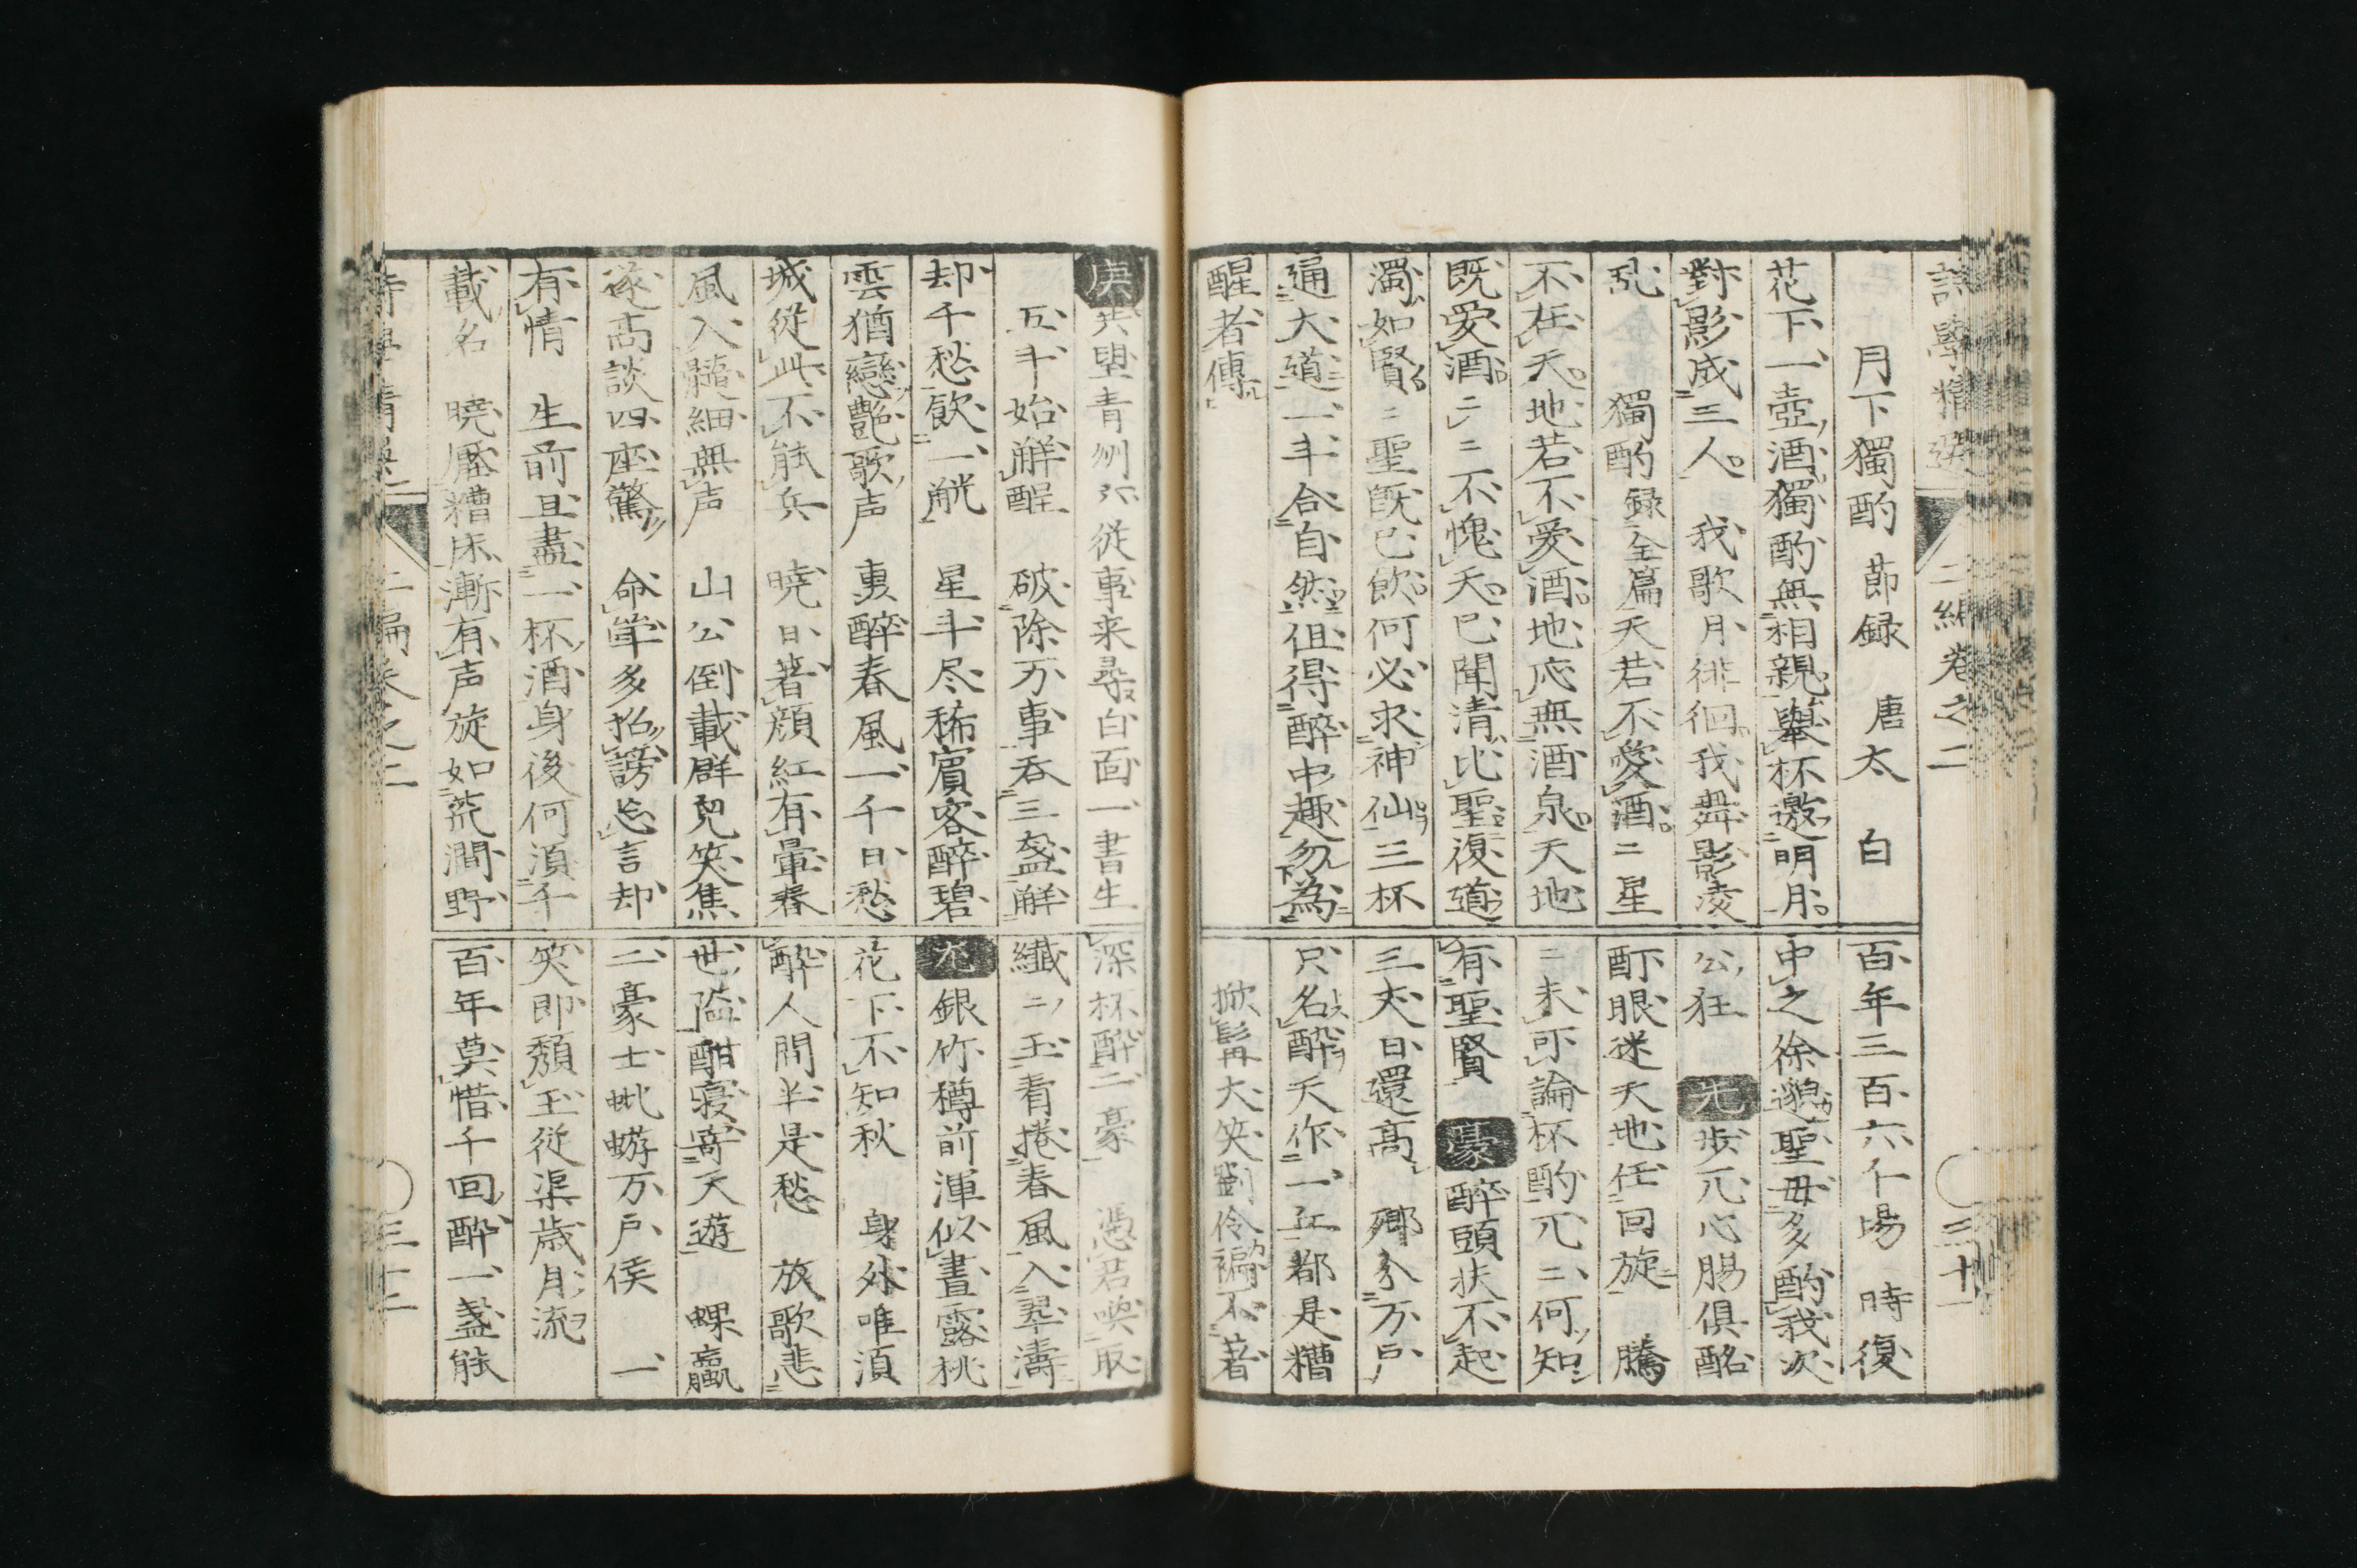 詩學精選 二編卷之二 三十一
月下獨酌 節録 唐 太 白
花下一壺酒獨酌無相親舉杯邀明月
對影成三人 我歌月徘徊我舞影凌
乱 獨酌 録全篇 天若不愛酒ニ星
不在天地若不愛酒地応無酒泉天地
既愛酒ニニ不愧天已聞清比聖復道
濁如賢ニ聖既已飲何必求神仙三杯
通大道一斗合自然但得醉中趣勿為
醒者傳
百年三百六十場 時復
中之徐邈聖毋多酌我次
公狂 尤 歩兀心腸俱酩
酊眼迷天地任回旋 騰
ニ未可論杯酌兀ニ何知
有聖賢 豪 醉頭扶不起
三丈日還高 郷分万戸
只名醉天作一丘都是糟
掀髯大笑劉伶褊不著
庚 共與青州從事来尋白面一書生
五斗始觧醒 破除万事吞三盞觧
却千愁飲一觥 星斗尽稀賓客醉碧
雲猶戀艶歌声 裏醉春風一千日愁
城從此不能兵 暁日著顔紅有暈春
風入髓細無声 山公倒載群児笑焦
遂高談四座驚 命単多招謗忘言却
有情 生前且盡一杯酒身後何須千
載名 暁壓糟床漸有声旋如荒澗野
深杯醉二豪 憑君喚取
纖ニ玉看捲春風入翠濤
尤 銀竹樽前渾似晝露桃
花下不知秋 身外唯須
醉人間半是愁 放歌悲
世隘酣寝寄天遊 蜾蠃
二豪士蚍蝣万戸侯 一
笑即頽玉從渠歳月流
百年莫惜千回醉一盞能
詩學精選 二編卷之二 三十二